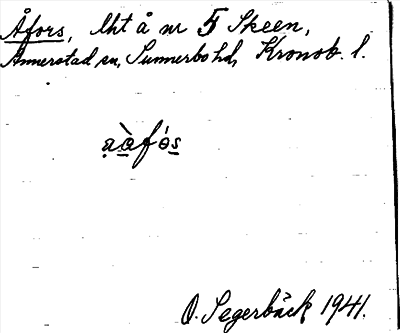 Åfors, lht å nr 5 Skeen,
Annerstad sn, Sunnerbo hd, Kronob. l.
aàfós
O. Segerbäck 1941.